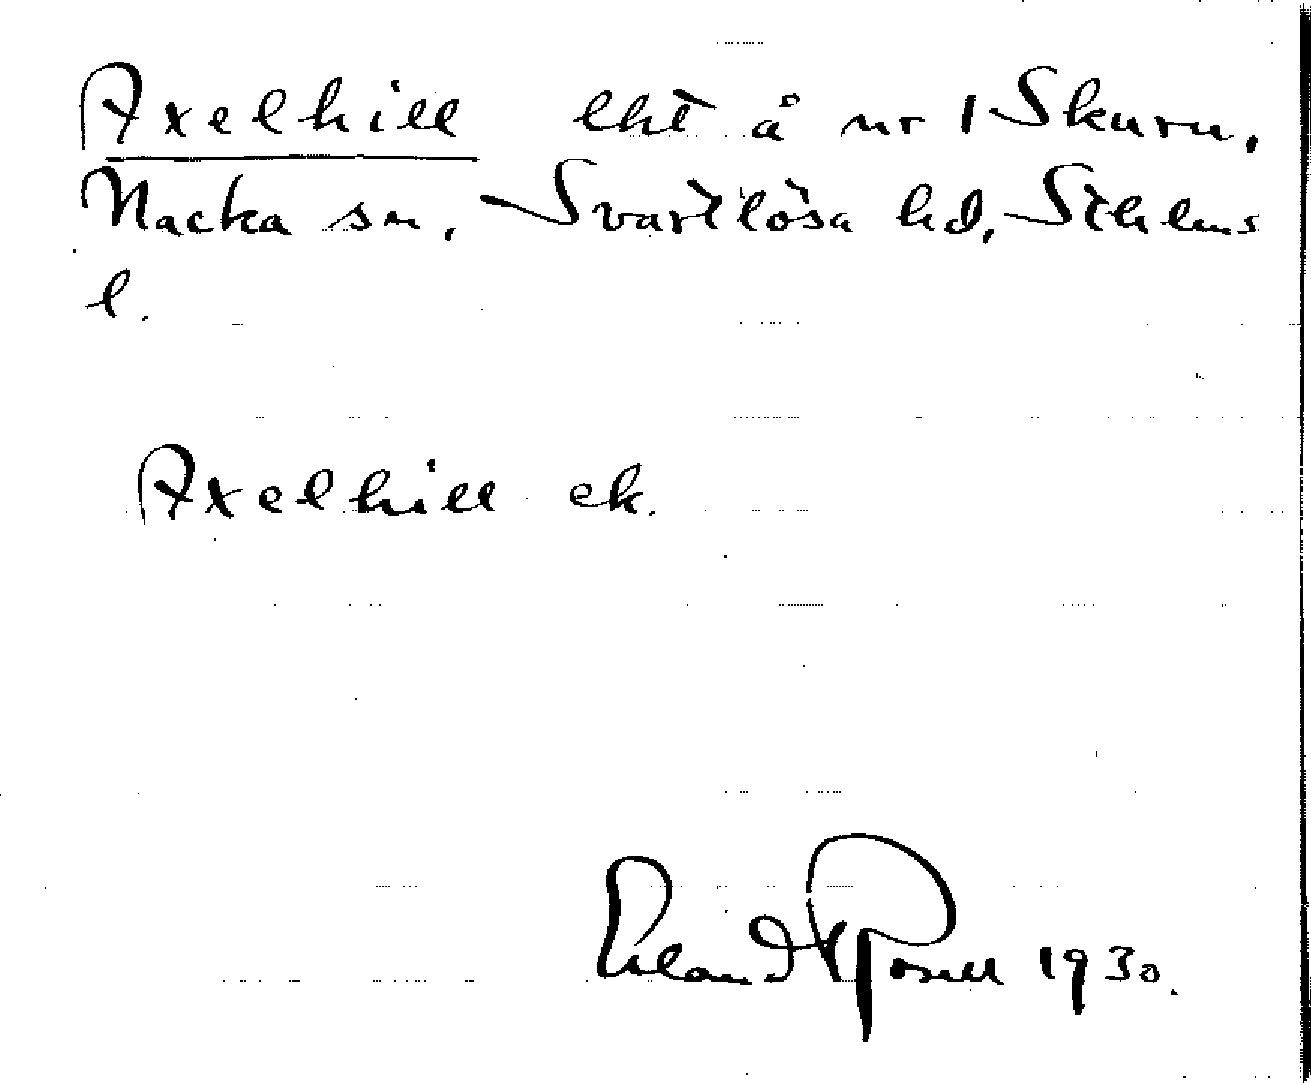 Axelhill lht å nr 1 Skuru,
Nacka sn, Svartlösa hd, Sthlms
l.
Axelhill ek.
Erland Rosell 1930.